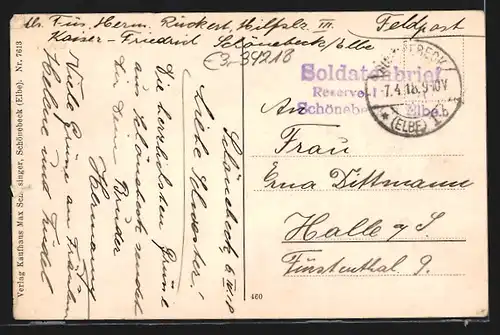 Abs. Füs. Herm. Rückert, Hilfslz. III.
Kaiser-Friedrich Schönebeck/Elbe
Feldpost
3-39218
Soldatenbrief
Reserve-
Schönebeck Elbe.
SCHÖNEBECK
-7.4.18. 9-10V
* (ELBE) 1
An
Frau
Erna Dittmann
Halle a/S
Fürstenthal 9.
Schönebeck, 6.IV.18
Liebe Schwester!
Die herzlichsten Grüße
aus Schönebeck sendet
Dir Dein Bruder
Hermann
Viele Grüsse an Fräulein
Helene und Friedel
Verlag Kaufhaus Max singer, Schönebeck (Elbe). Nr. 7613
460